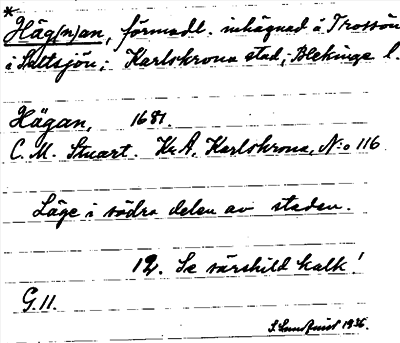 *
Häg(n)an, förmodl. inhägnad å Trossön
i Saltsjön; Karlskrona stad; Blekinge l.
Hägan, 1681.
C. M. Stuart. Kr A, Karlskrona, N:o 116
Läge i södra delen av staden.
12. Se särskild kalk!
G. 11.
S. Lundquist 1936.